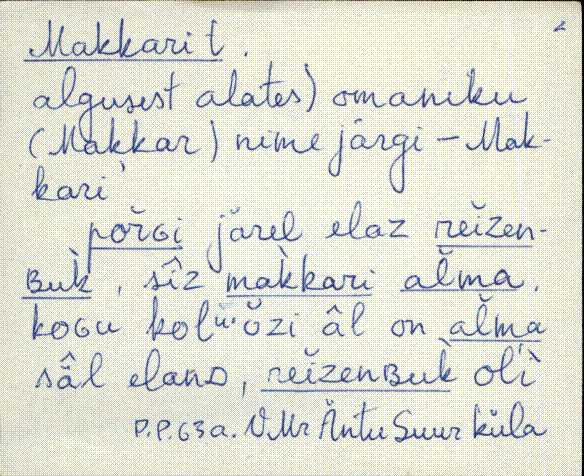 Makkari t.
algusest alates) omaniku
(Makkar) nime järgi – Mak-
kari
pŏřɢi järel elaz rei̬zen-
ʙuk̀, sîz mak̀kari ăl̆ma.
koɢu âl on ăl̆ma
säl elanᴅ, rei̬zenʙuk̀ oĺì
P.P. 63 a. VMr Äntu Suurküla